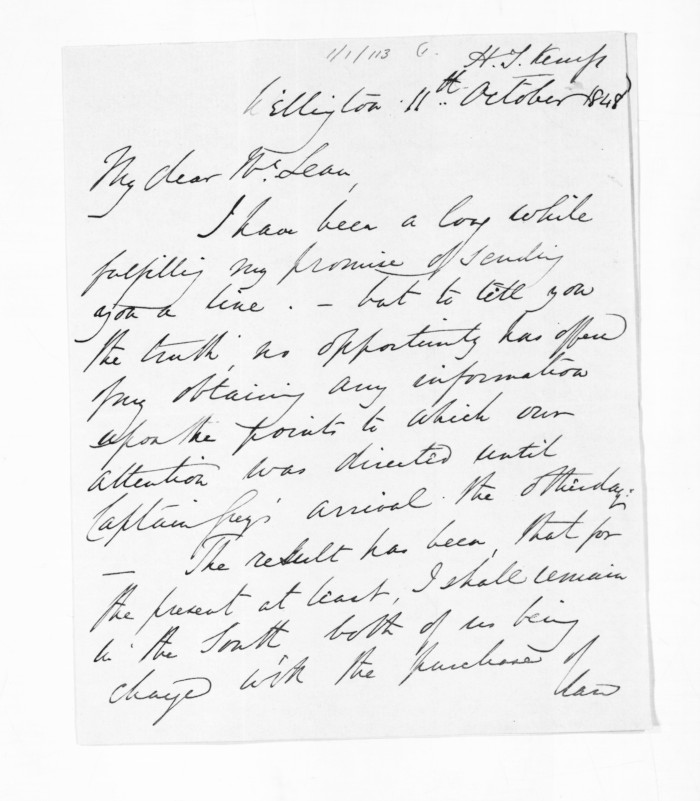 1/1/113 G.
H. T. Kemp
Wellington 11th October 1848
My dear Mr. Lean,
I have been a long while
fulfilling my promise of sending
you a line. – but to tell you
the truth, no opportunity has offered
of my obtaining any information
upon the points to which our
attention was directed until
Captain Grey's arrival the otherday:
— The result has been, that for
the present at least, I shall remain
in the South, both of us being
charged with the purchase of